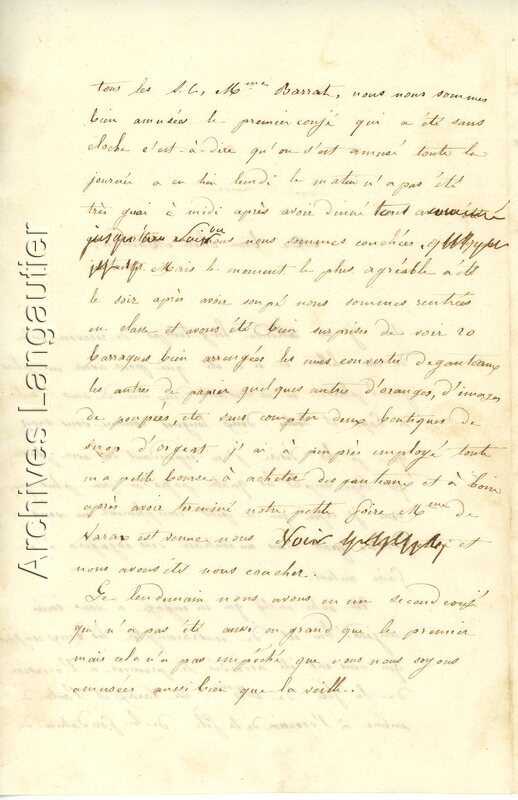 tous les S. C, Mme Barrat, nous nous sommes
bien amusées le premier conjé qui a été sans
cloche c'est-à-dire qu'on s'est amusé toute la
journée a eu lieu lundi le matin n'a pas été
très guai à midi après avoir dinné tout
jusqu'au soir ou nous nous sommes couchées.
Mais le moment le plus agréable a été
le soir après avoir soupé nous sommes rentrées
en classe et avons été bien surprises de voir 20
barraques bien arrangées les unes couvertes de gauteaux
les autres de papier quelques autres d'oranges, d'images
de poupées, etc sans compter deux boutiques de
sirop d'orgeat j'ai à peu près employé toute
ma petite bourse à acheter des gauteaux et à boire
après avoir terminé notre petite foire Mme de
Varax est venue nous Voir et
nous avons étés nous coucher.
Le lendemain nous avons eu un second conjé
qui n'a pas été aussi en grand que le premier
mais cela n'a pas empêché que nous nous soyons
amusées aussi bien que la veille.
Archives Langautier